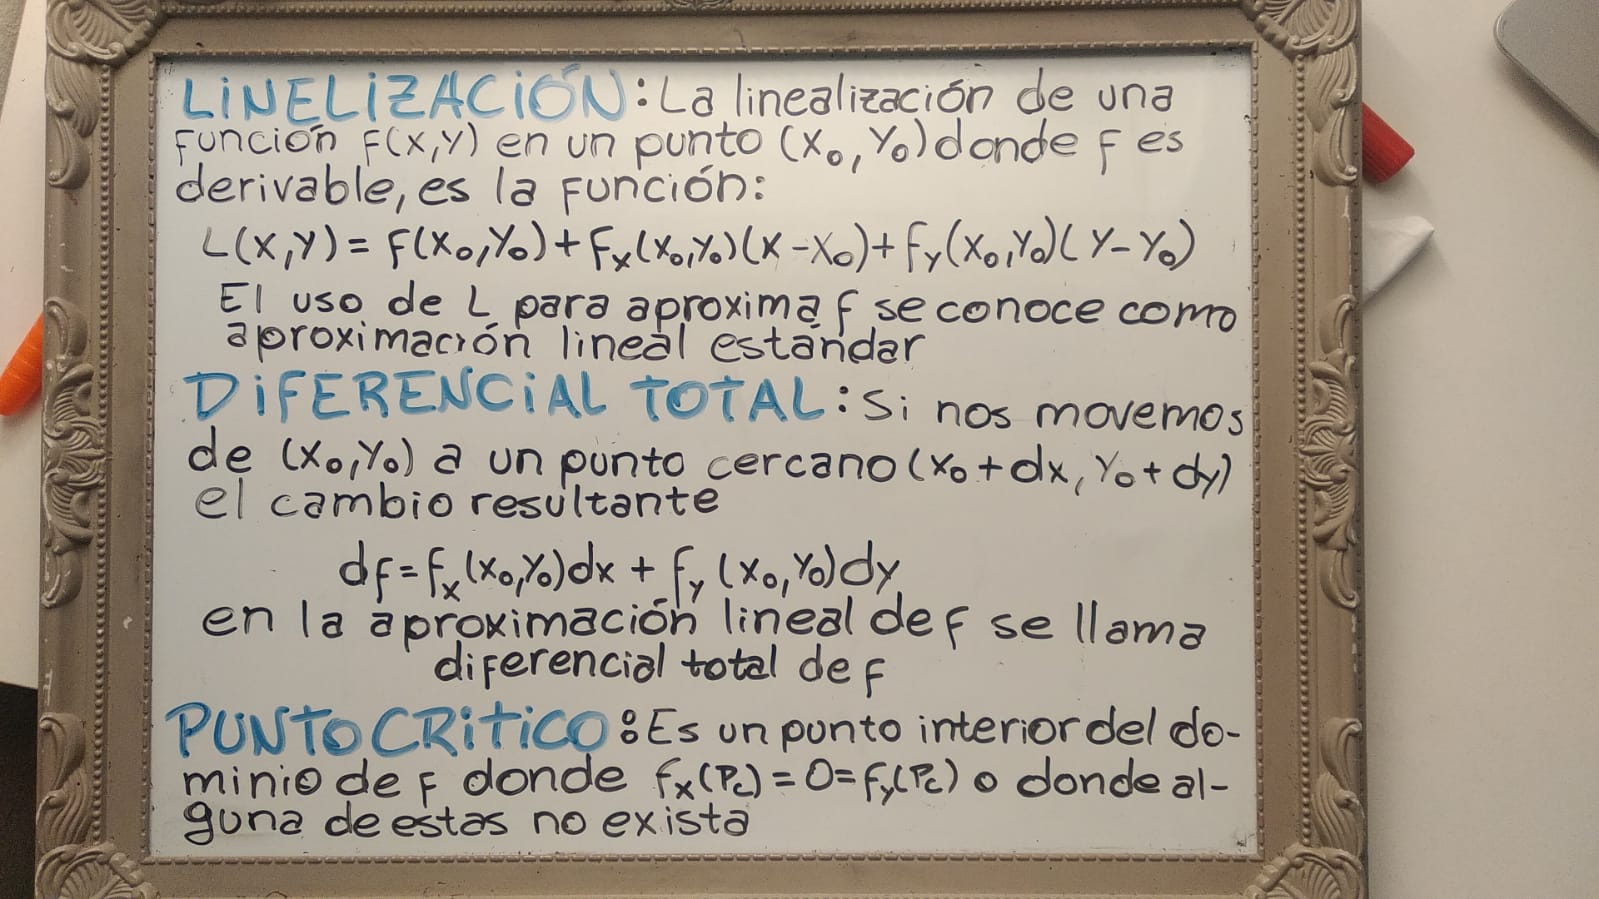 LINELIZACIÓN: La linealización de una
función f(x,y) en un punto (x₀, y₀) donde f es
derivable, es la función:
L(x,y) = f(x₀,y₀) + fₓ(x₀,y₀)(x-x₀) + fᵧ(x₀,y₀)(y-y₀)
El uso de L para aproxima f se conoce como
aproximación lineal estándar
DIFERENCIAL TOTAL: Si nos movemos
de (x₀,y₀) a un punto cercano (x₀+dx, y₀+dy)
el cambio resultante
df = fₓ(x₀,y₀)dx + fᵧ (x₀,y₀)dy
en la aproximación lineal de f se llama
diferencial total de f
PUNTO CRITICO: Es un punto interior del do-
minio de f donde fₓ(Pc) = 0 = fᵧ(Pc) o donde al-
guna de estas no exista